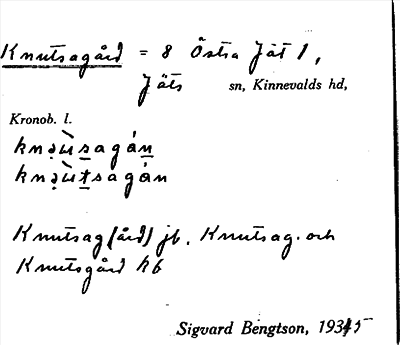 Knutsagård = 8 Östra Jät 1,
Jäts sn, Kinnevalds hd,
Kronob. l.
knə̣ùsagán
knə̣ùtsagán
Knutsag(ård) jb, Knutsag. och
Knutsgård kb
Sigvard Bengtson, 1935